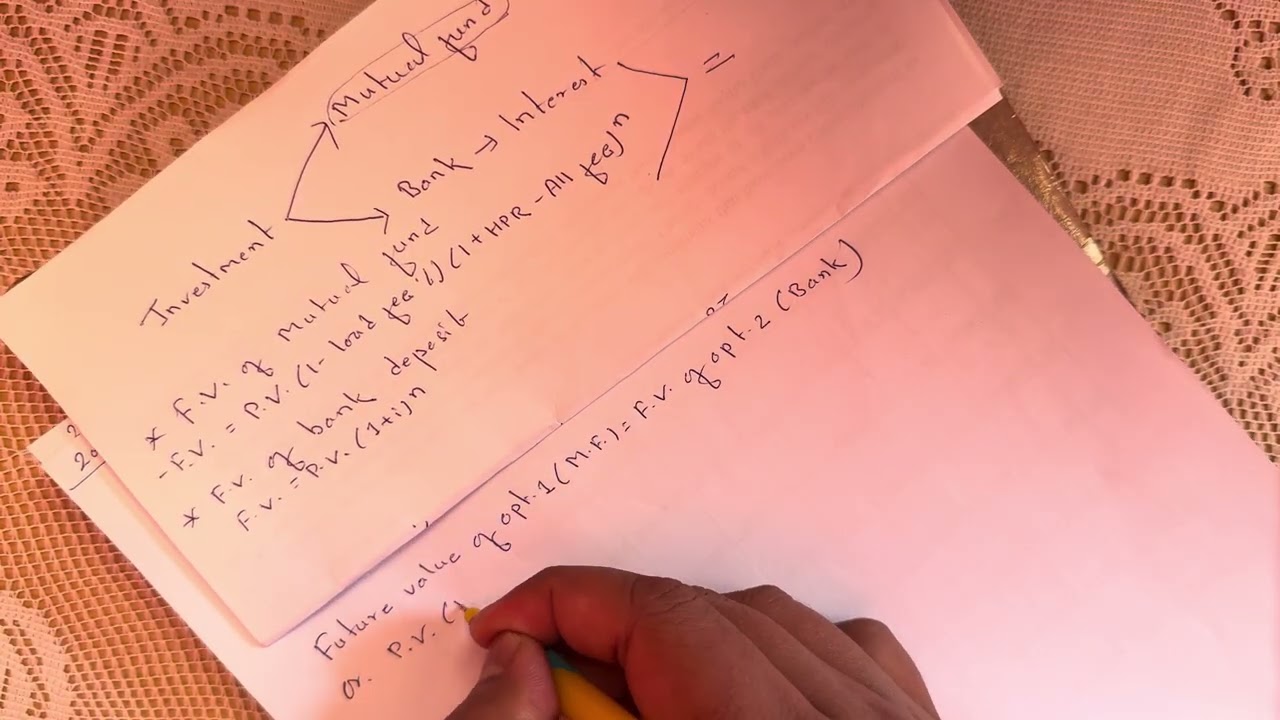 Mutual fund
Investment
Bank → Interest
=
* F.V. of Mutual fund
- F.V. = P.V. (1 - load fee %) (1 + HPR - All fee)n
* F.V. of bank deposit
F.V. = P.V. (1+i)n
20
Future value of opt. 1 (M.F.) = F.V. of opt. 2 (Bank)
or. P.V. (1